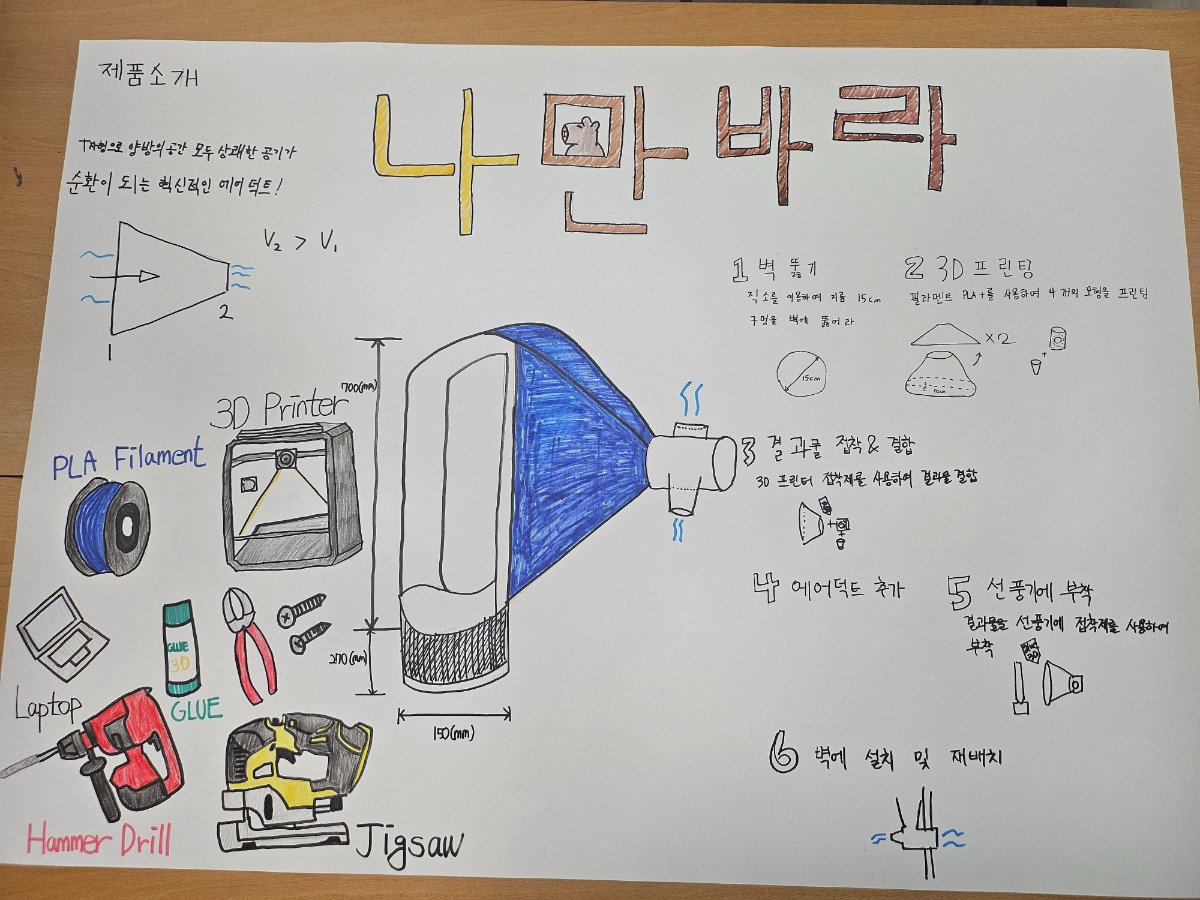 제품소개
나만바라
T자형으로 양방의 공간 모두 상쾌한 공기가
순환이 되는 혁신적인 에어덕트!
V₂ > V₁
1
2
1 벽 뚫기
직소를 이용하여 지름 15cm
구멍을 벽에 뚫어라
15cm
2 3D 프린팅
필라멘트 PLA+를 사용하여 4개의 모형을 프린팅
×2
+
700(mm)
270(mm)
150(mm)
3D Printer
PLA Filament
3 결과물 접착 & 결합
3D 프린터 접착제를 사용하여 결과물 결합
+
+
4 에어덕트 추가
5 선풍기에 부착
결과물을 선풍기에 접착제를 사용하여
부착
6 벽에 설치 및 재배치
Laptop
GLUE
3D
GLUE
Hammer Drill
Jigsaw